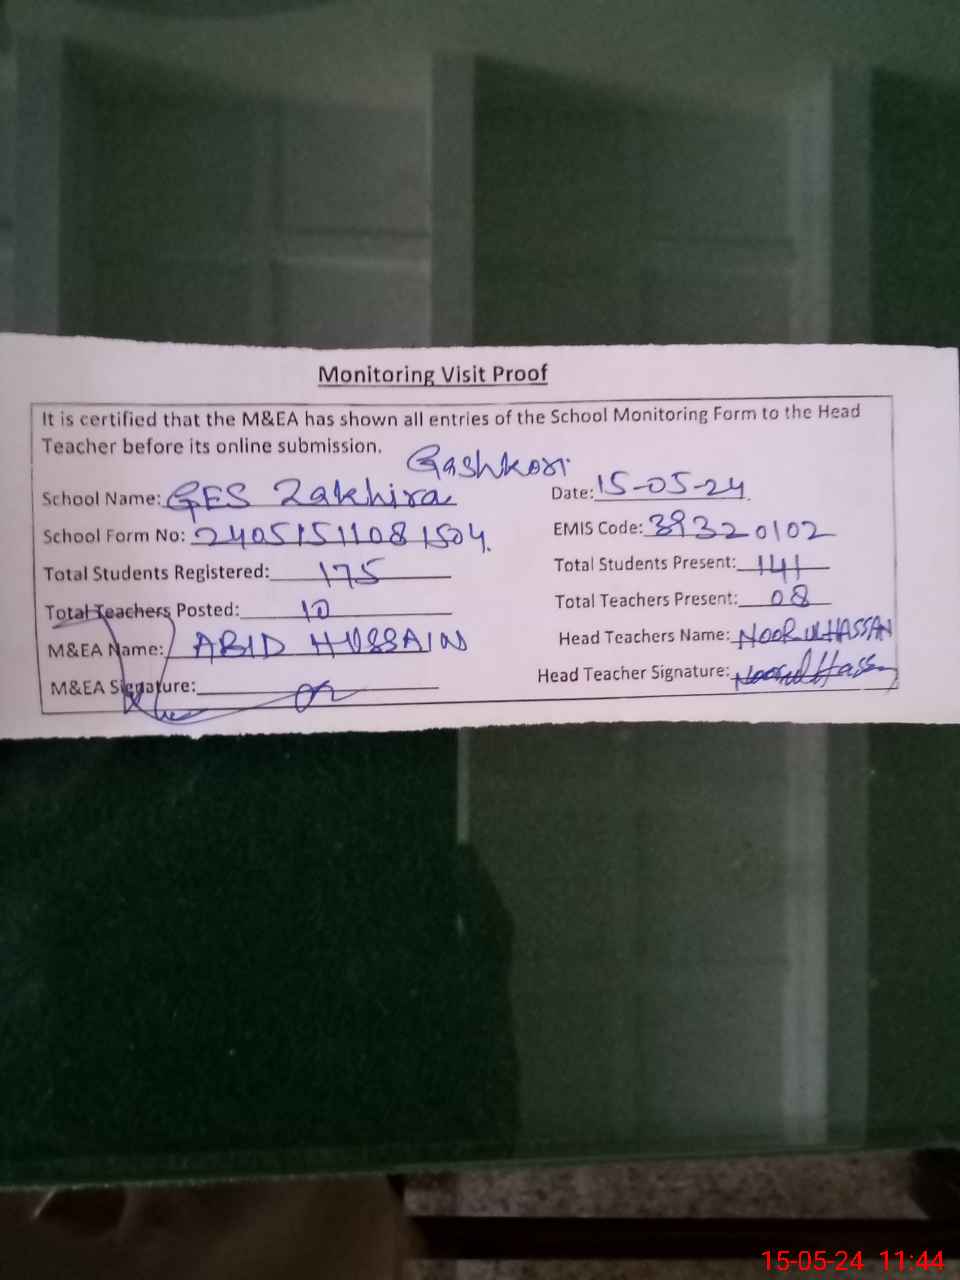 Monitoring Visit Proof
It is certified that the M&EA has shown all entries of the School Monitoring Form to the Head
Teacher before its online submission.
Gashkori
School Name: GES Zakhira Date: 15-05-24
School Form No: 24051511081504. EMIS Code: 39320102
Total Students Registered: 175 Total Students Present: 141
Total Teachers Posted: 10 Total Teachers Present: 08
M&EA Name: ABID HUSSAIN Head Teachers Name: NOOR UL HASSAN
M&EA Signature: Head Teacher Signature: Noorul Hassan
15-05-24 11:44